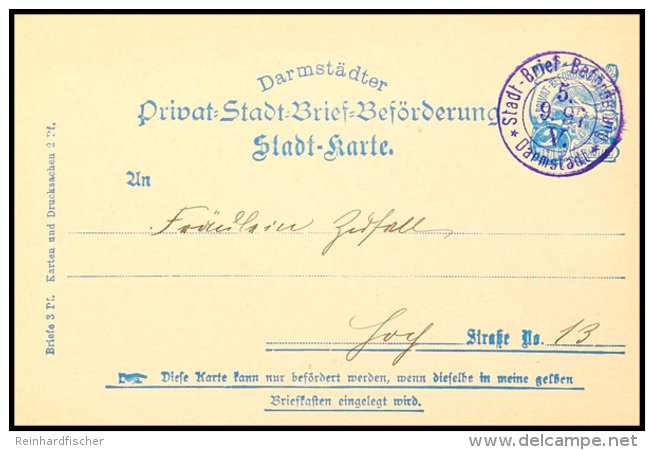 Darmstädter
Privat-Stadt-Brief-Beförderung
Stadt-Karte.
Stadt-Brief-Beförderung
5.
9.97
V.
* Darmstadt *
An
Fräulein Zufall
Hoch Straße No. 13
☞ Diese Karte kann nur befördert werden, wenn dieselbe in meine gelben
Briefkasten eingelegt wird.
Briefe 3 Pf. Karten und Drucksachen 2 Pf.
Reinhardfischer
delcampe.net